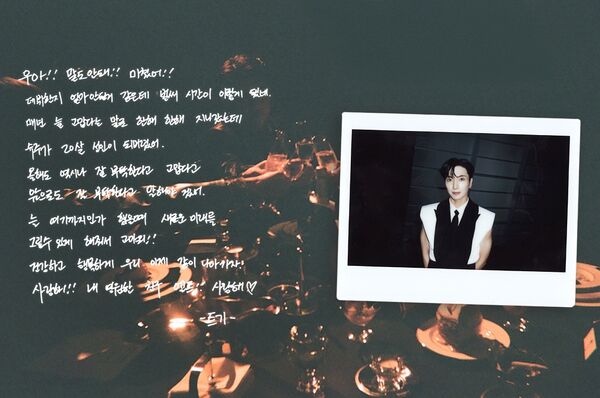 우아!! 말도안돼!! 미쳤어!!
데뷔한지 얼마안된거 같은데 벌써 시간이 이렇게 됐네.
매년 늘 고맙다는 말로 한해 한해 지나갔는데
우주가 20살 성인이 되었어.
올해도 역시나 잘 부탁한다고 고맙다고
앞으로도 잘 부탁한다고 말하고 싶어.
늘 여기까지인가 했는데 새로운 미래를
그릴수 있게 해줘서 고마워!!
건강하고 행복하게 우리 이제 같이 나아가자!
사랑해!! 내 영원한 친구 엘프!! 사랑해♡
-특가-